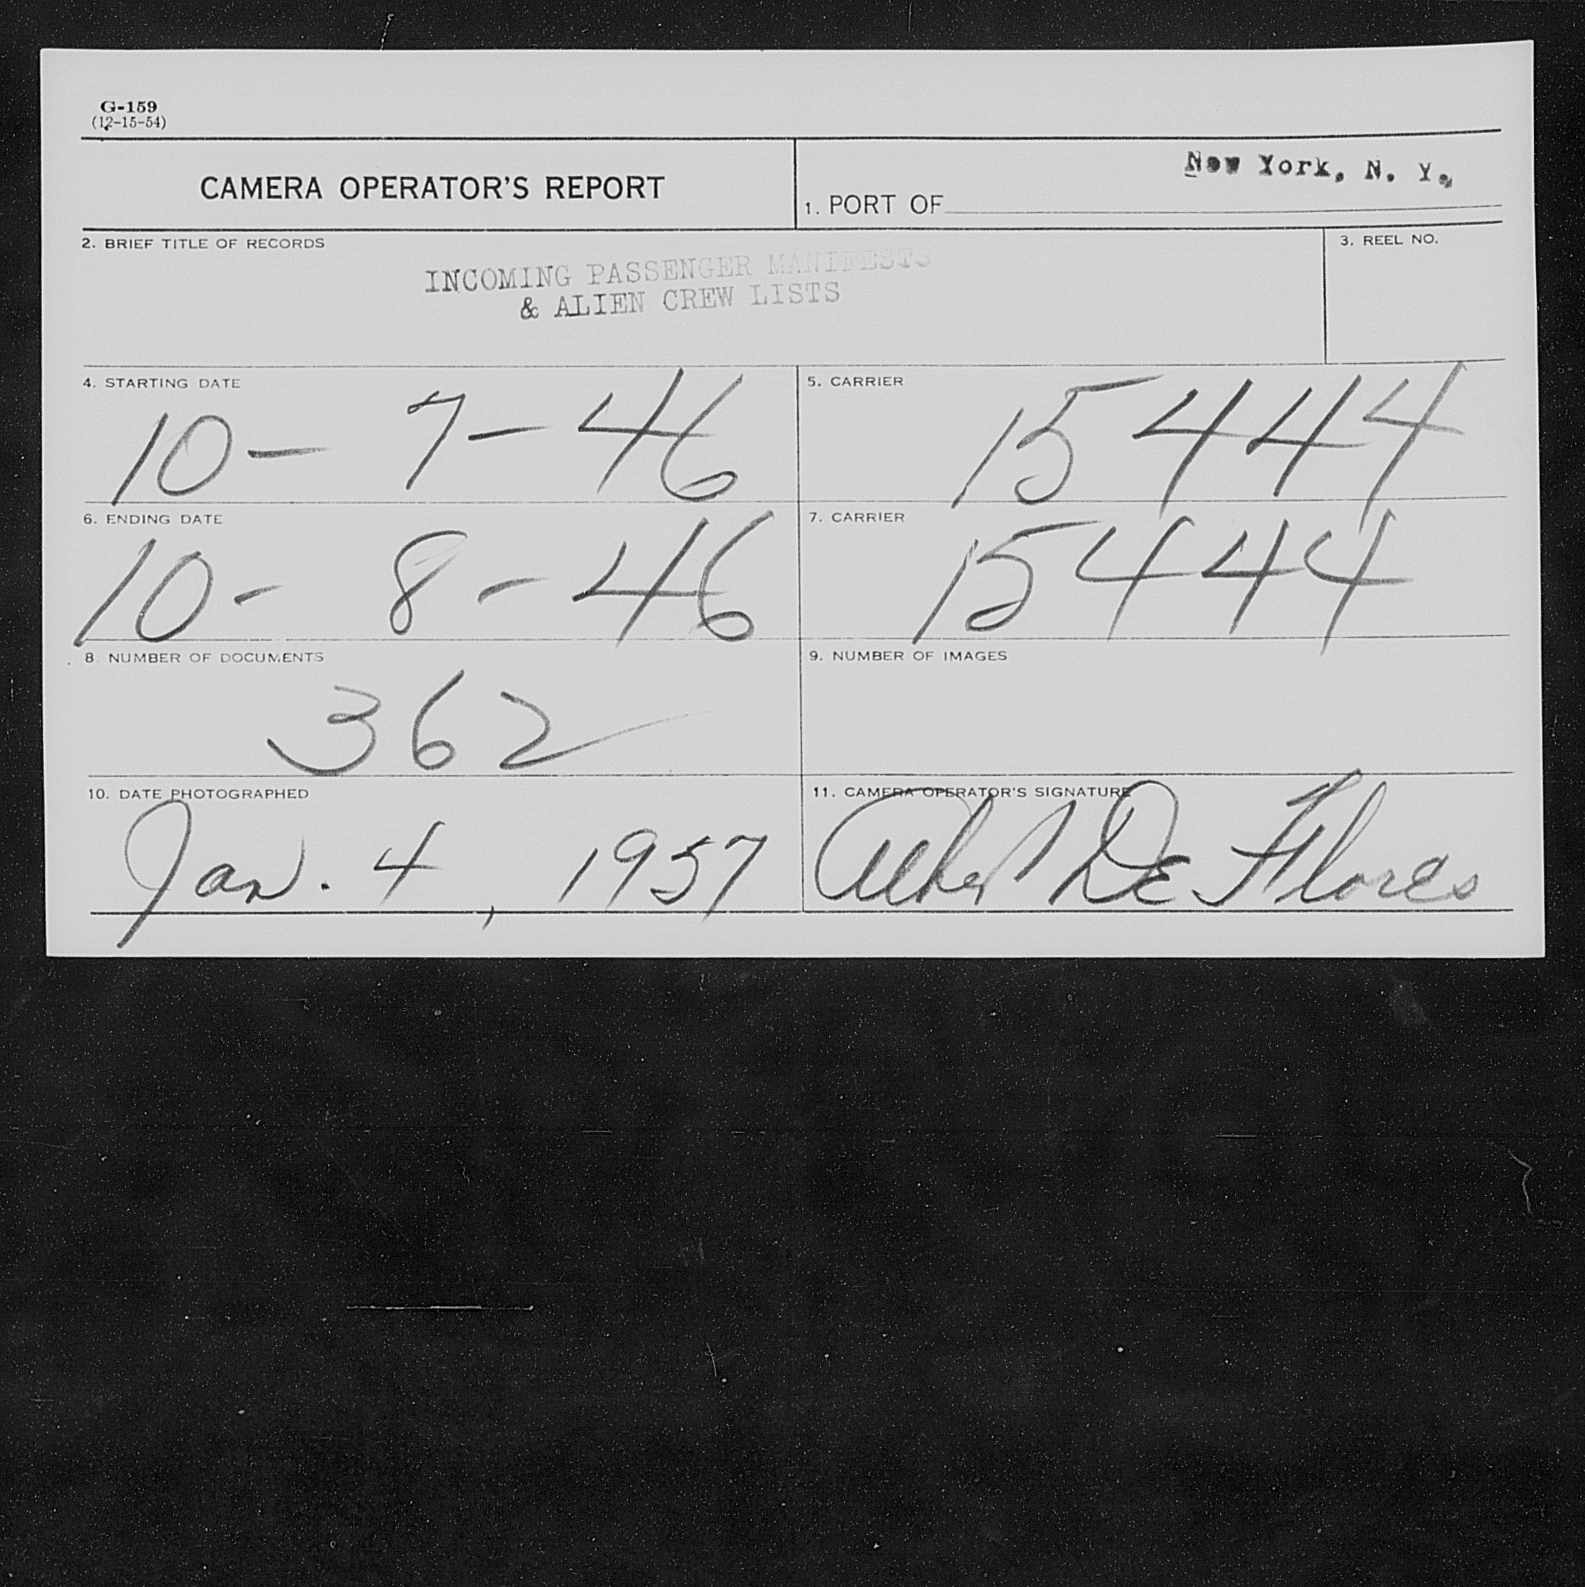 G-159
(12-15-54)
CAMERA OPERATOR'S REPORT
1. PORT OF New York, N. Y.
2. BRIEF TITLE OF RECORDS
INCOMING PASSENGER MANIFESTS
& ALIEN CREW LISTS
3. REEL NO.
4. STARTING DATE
10-7-46
5. CARRIER
15444
6. ENDING DATE
10-8-46
7. CARRIER
15444
8. NUMBER OF DOCUMENTS
362
9. NUMBER OF IMAGES
10. DATE PHOTOGRAPHED
Jan. 4, 1957
11. CAMERA OPERATOR'S SIGNATURE
De Flores